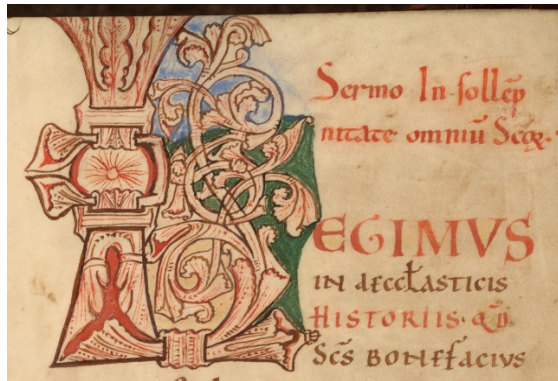 Sermo In sollēp
nitate omniū Scōꝝ.
LEGIMVS
IN AECCLASTICIS
HISTORIIS· QD̄
SC̄S BONEFACIVS